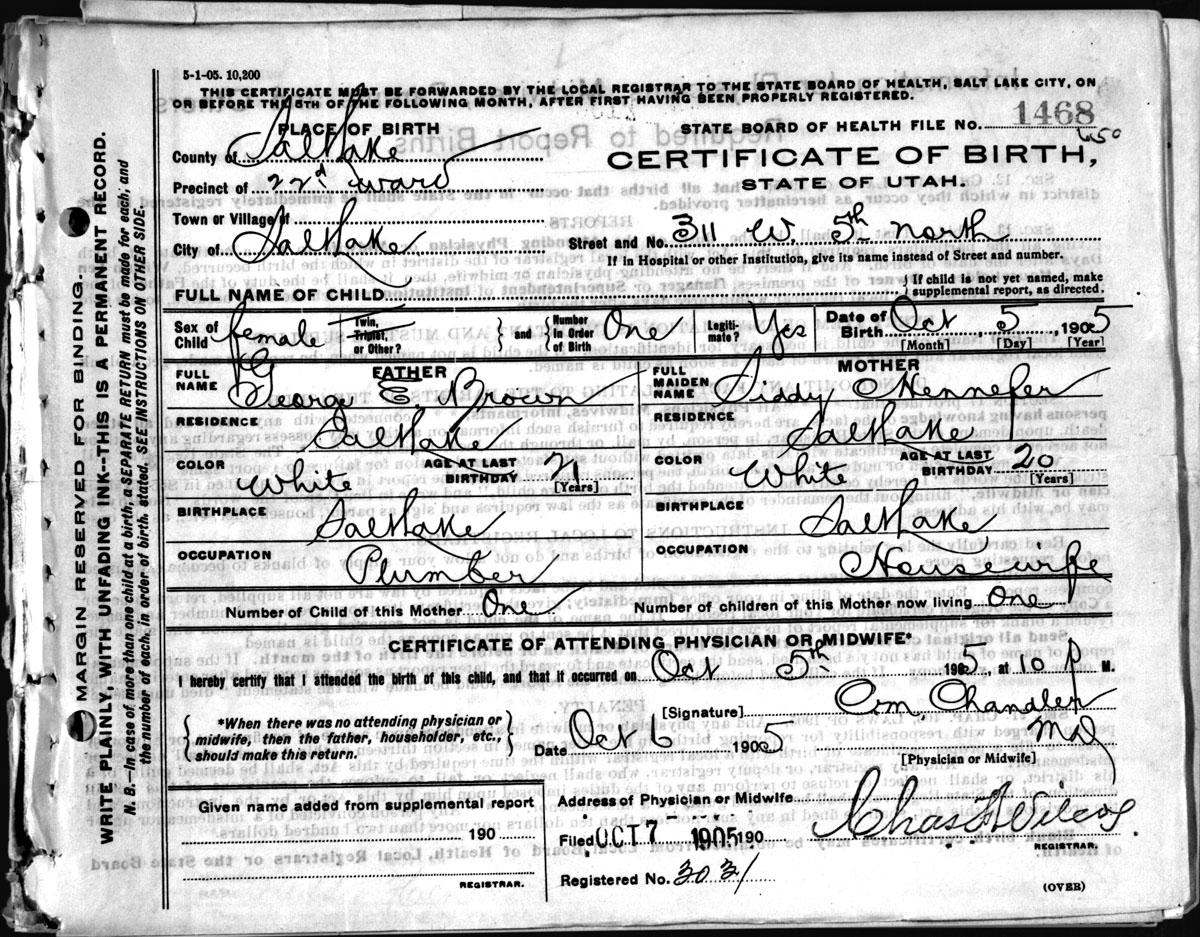 5-1-05. 10,200
THIS CERTIFICATE MUST BE FORWARDED BY THE LOCAL REGISTRAR TO THE STATE BOARD OF HEALTH, SALT LAKE CITY, ON
OR BEFORE THE 5TH OF THE FOLLOWING MONTH, AFTER FIRST HAVING BEEN PROPERLY REGISTERED.
PLACE OF BIRTH
STATE BOARD OF HEALTH FILE NO. 1468
450
County of Salt Lake
CERTIFICATE OF BIRTH,
Precinct of 22d Ward
STATE OF UTAH.
Town or Village of
City of Salt Lake
Street and No. 311 W. 5th North
If in Hospital or other Institution, give its name instead of Street and number.
FULL NAME OF CHILD
If child is not yet named, make
supplemental report, as directed.
Sex of Child female
Twin, Triplet, or Other?
and Number in Order of Birth One
Legitimate? Yes
Date of Birth Oct 5, 1905
[Month] [Day] [Year]
FATHER
FULL NAME George E Brown
MOTHER
FULL MAIDEN NAME Siddy Hennefer
RESIDENCE Salt Lake
RESIDENCE Salt Lake
COLOR White
AGE AT LAST BIRTHDAY 21 [Years]
COLOR White
AGE AT LAST BIRTHDAY 20 [Years]
BIRTHPLACE Salt Lake
BIRTHPLACE Salt Lake
OCCUPATION Plumber
OCCUPATION Housewife
Number of Child of this Mother One
Number of children of this Mother now living One
CERTIFICATE OF ATTENDING PHYSICIAN OR MIDWIFE*
I hereby certify that I attended the birth of this child, and that it occurred on Oct 5th 1905, at 10 P M.
*When there was no attending physician or
midwife, then the father, householder, etc.,
should make this return.
[Signature] C.m. Chandler
MD
Date Oct 6 1905
[Physician or Midwife]
Given name added from supplemental report
190
REGISTRAR.
Address of Physician or Midwife
Filed OCT 7 1905 190
Chas Wilcox
REGISTRAR.
Registered No. 3031
(OVER)
MARGIN RESERVED FOR BINDING.
WRITE PLAINLY, WITH UNFADING INK--THIS IS A PERMANENT RECORD.
N. B.--In case of more than one child at a birth, a SEPARATE RETURN must be made for each, and
the number of each, in order of birth, stated. SEE INSTRUCTIONS ON OTHER SIDE.